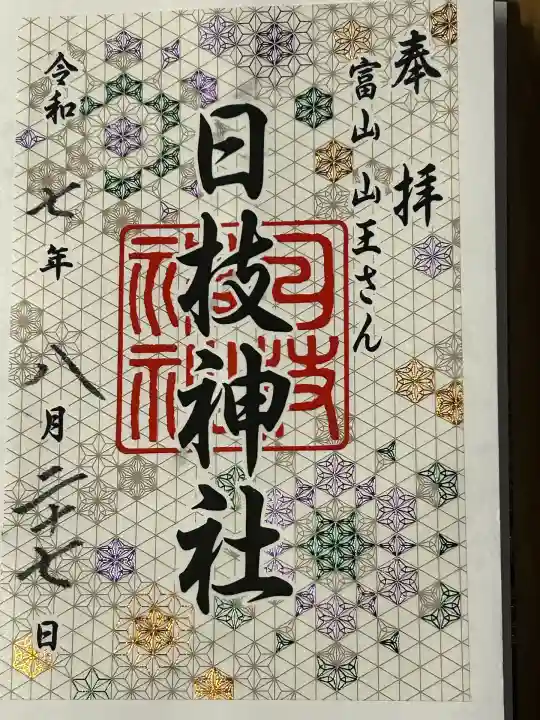 奉拝
富山 山王さん
日枝神社
日枝神社
令和七年八月二十七日